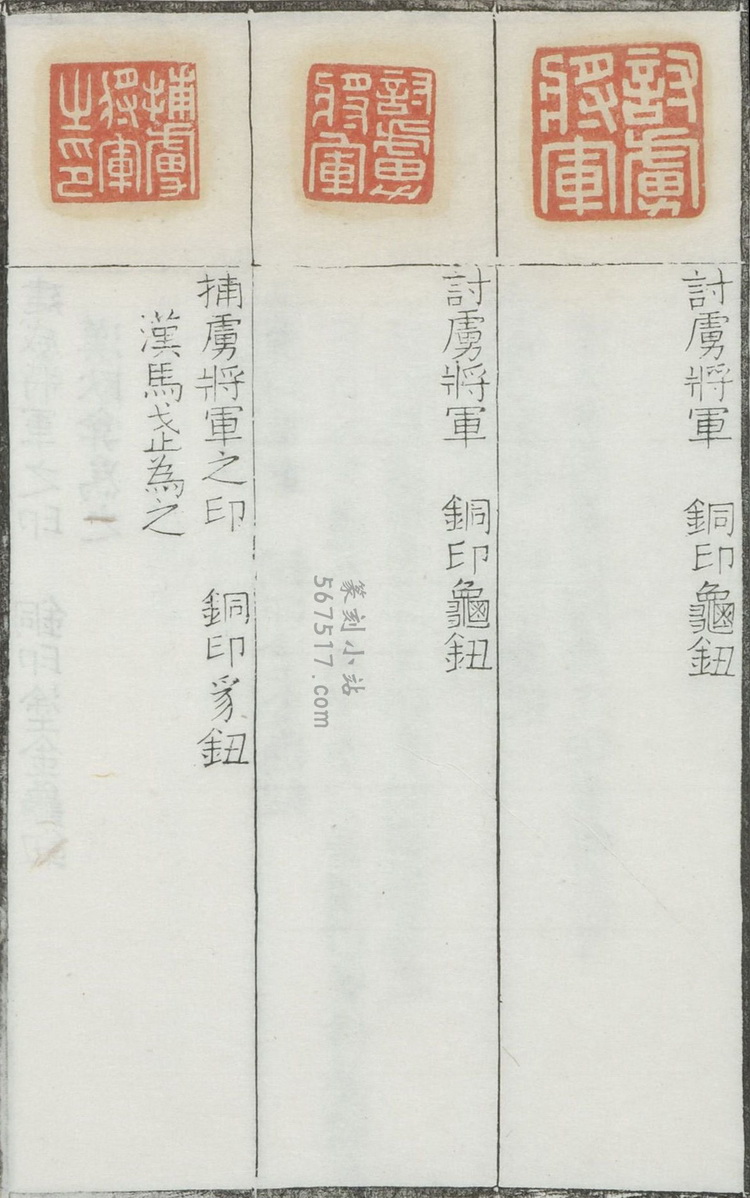 討虜將軍
討虜將軍　銅印龜鈕
討虜將軍
討虜將軍　銅印龜鈕
捕虜將軍之印
捕虜將軍之印　銅印豸鈕
漢馬武為之
篆刻小站
567517.com